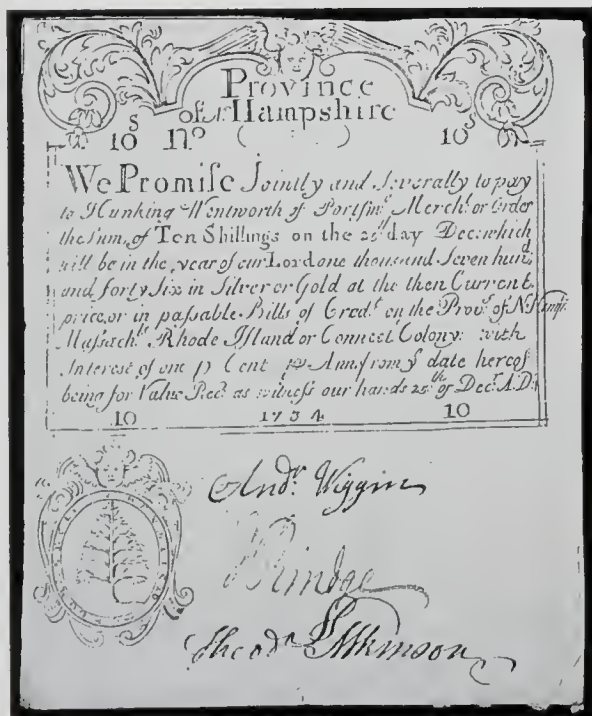 Province
of N Hampshire
10ˢ Nº ( ) 10ˢ
We Promise Jointly and Severally to pay
to Hunking Wentworth of Portsmº Merchᵗ or Order
the Sum of Ten Shillings on the 25ᵗʰ day Decʳ which
will be in the year of our Lord one thousand Seven hundᵈ
and forty Six in Silver or Gold at the then Current
price, or in passable Bills of Credᵗ on the Provᵉ of N Hampʳ
Massachᵗˢ Rhode Island or Connectᵗ Colony: with
Interest of one p Cent p Annᵐ from yᵉ date hereof
being for Value Recᵈ as witness our hands 25ᵗʰ of Decʳ A.D:
10 1734 10
Andʳ Wiggin
J Rindge
Theodʳ Atkinson